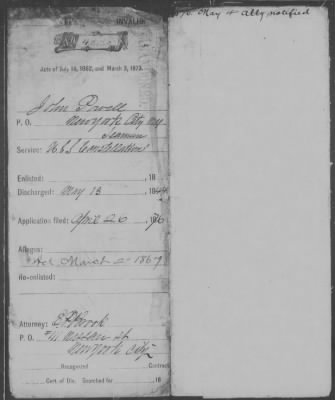 INVALID
Acts of July 14, 1862, and March 3, 1873.
John Powell
P. O. New York City N.Y.
Seaman
Service: U.S.S. Constellation
Enlisted: , 18
Discharged: May 13 18
Application filed: April 26, 1876
Alleges:
Act March 2 1867
Re-enlisted:
Attorney:
P. O. #41 Nassau St
New York City
Recognized Contract
Cert. of Dis. Searched for 18
May 4 Atty notified